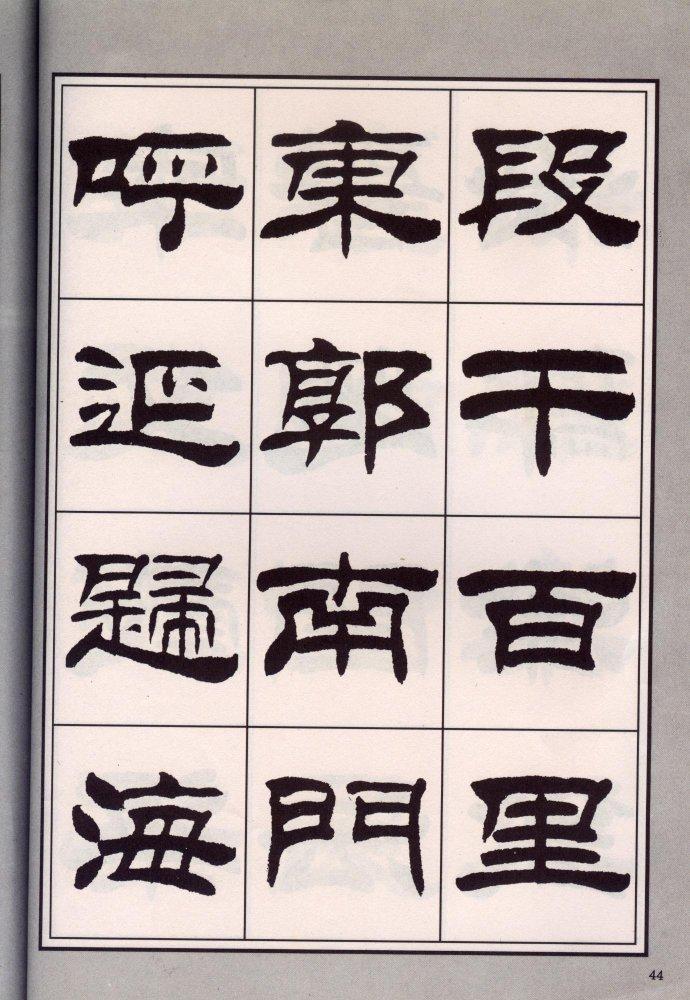 段干百里
東郭南門
呼延歸海
44